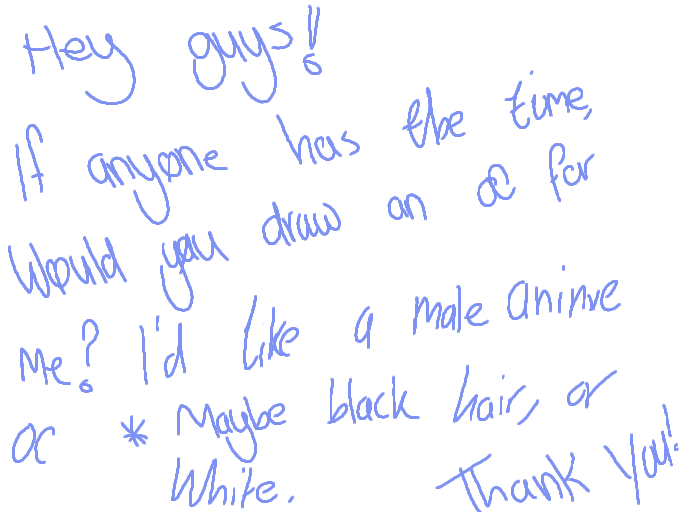 Hey guys!
If anyone has the time,
Would you draw an oc for
Me? I'd like a male anime
oc * Maybe black hair, or
White. Thank you!